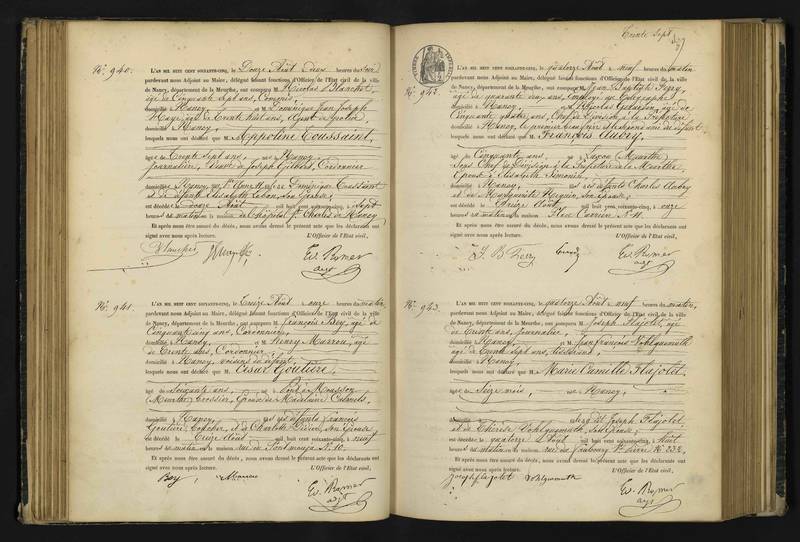 No. 940.
L'AN MIL HUIT CENT SOIXANTE-CINQ, le Douze Août Deux heures du Soir
pardevant nous Adjoint au Maire, délégué faisant fonctions d'Officier de l'Etat civil de la ville
de Nancy, département de la Meurthe, ont comparu M. Nicolas Blanchet,
âgé de Cinquante sept ans,
domicilié à Nancy, et M. Dominique Jean Joseph
âgé de trente huit ans, Agent de
domicilié à Nancy,
lesquels nous ont déclaré que M. Appoline Toussaint,
âgée de Trente sept ans, née à Nancy
Journalière, de Joseph Cordonnier
domiciliée à Nancy, Dominique Toussaint
et de Elisabeth
est décédée le douze Août mil huit cent soixante-cinq, à Sept
heures du matin en la maison de l'hôpital St. Charles de Nancy
Et après nous être assuré du décès, nous avons dressé le présent acte que les déclarants ont
signé avec nous après lecture. L'Officier de l'Etat civil,
Blanchet Ed. Rymer
adjt
No. 941.
L'AN MIL HUIT CENT SOIXANTE-CINQ, le Treize Août onze heures du matin
pardevant nous Adjoint au Maire, délégué faisant fonctions d'Officier de l'Etat civil de la ville
de Nancy, département de la Meurthe, ont comparu M. François Bey, âgé de
Cinquante cinq ans, Cordonnier,
domicilié à Nancy, et M. Henry Marrou, âgé
de Trente ans, Cordonnier,
domicilié à Nancy, voisins du défunt,
lesquels nous ont déclaré que M. César Goutière,
âgé de Soixante ans, né à Pont à Mousson
(Meurthe) Brossier, Epoux de Madelaine
domicilié à Nancy, fils des défunts François
Goutière, et de Charlotte Didier, son Epouse
est décédé le Treize Août mil huit cent soixante-cinq, à neuf
heures du matin en la maison rue de Pont mouja No. 10.
Et après nous être assuré du décès, nous avons dressé le présent acte que les déclarants ont
signé avec nous après lecture. L'Officier de l'Etat civil,
Bey, Marrou Ed. Rymer
adjt
Trente Sept
37
No. 942.
L'AN MIL HUIT CENT SOIXANTE-CINQ, le quatorze Août à neuf heures du matin
pardevant nous Adjoint au Maire, délégué faisant fonctions d'Officier de l'Etat civil de la ville
de Nancy, département de la Meurthe, ont comparu M. Jean Baptiste Ferry,
âgé de quarante deux ans, Employé au télégraphe
domicilié à Nancy, et M. Nicolas âgé de
Cinquante quatre ans, Chef de Division à la Préfecture
domicilié à Nancy, le premier beau frère et le second ami du défunt
lesquels nous ont déclaré que M. François Aubry,
âgé de Cinquante ans, né à (Meurthe)
Sous Chef de Division à la Préfecture de la Meurthe,
Epoux d'Elisabeth Simonin,
domicilié à Nancy, fils des défunts Charles Aubry
et de Marguerite son épouse,
est décédé le Treize Août, mil huit cent soixante-cinq, à onze
heures du matin en la maison Place Carrière No. 11.
Et après nous être assuré du décès, nous avons dressé le présent acte que les déclarants ont
signé avec nous après lecture. L'Officier de l'Etat civil,
J. B. Ferry Ed. Rymer
adjt
No. 943.
L'AN MIL HUIT CENT SOIXANTE-CINQ, le quatorze Août à neuf heures du matin,
pardevant nous Adjoint au Maire, délégué faisant fonctions d'Officier de l'Etat civil de la ville
de Nancy, département de la Meurthe, ont comparu M. Joseph Flajolet, âgé
de Trente ans, Journalier,
domicilié à Nancy, et M. Jean François Vohlguemuth
âgé de Trente sept ans, Tisserand,
domicilié à Nancy,
lesquels nous ont déclaré que M. Marie Camille Flajolet,
âgée de Seize mois, née à Nancy,
fille de Joseph Flajolet
et de Thérèse Vohlguemuth, son épouse,
est décédée le quatorze Août mil huit cent soixante-cinq, à huit
heures du matin en la maison rue du faubourg St. Pierre No. 232.
Et après nous être assuré du décès, nous avons dressé le présent acte que les déclarants ont
signé avec nous après lecture. L'Officier de l'Etat civil,
Joseph flajolet Vohlguemuth Ed. Rymer
adjt